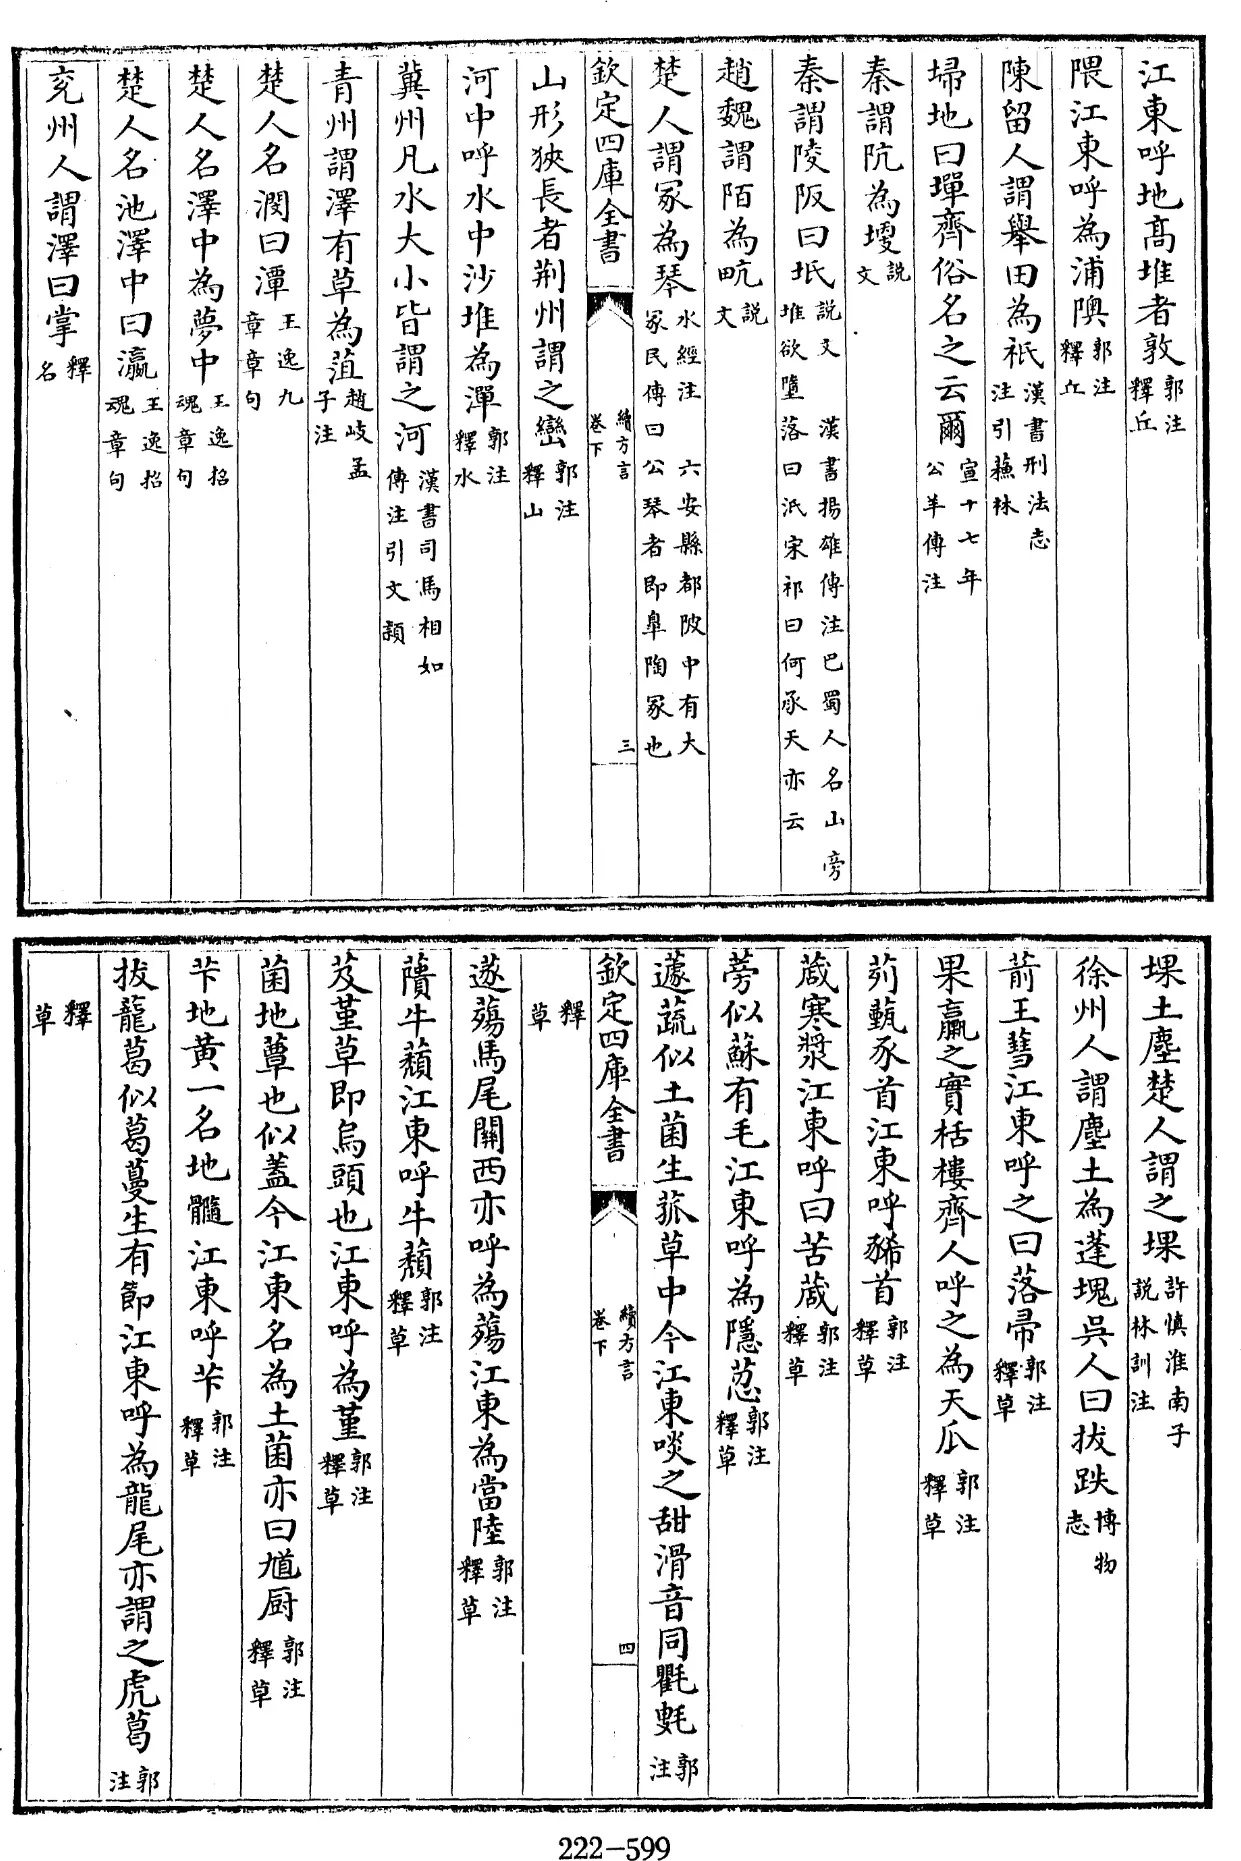 江東呼地高堆者敦郭注釋丘
隈江東呼為浦隩郭注釋丘
陳留人謂舉田為祇漢書刑法志注引蘓林
埽地曰墠齊俗名之云爾宣十七年公羊傳注
秦謂阬為㙤說文
秦謂陵阪曰坻說文堆欲墮落曰汦宋祁曰何承天亦云漢書揚雄傳注巴蜀人名山旁
趙魏謂陌為䟘說文
楚人謂冢為琴水經注六安縣都陂中有大冢民傳曰公琴者即臯陶冢也
欽定四庫全書
續方言卷下
三
山形狹長者荆州謂之巒郭注釋山
河中呼水中沙堆為渾郭注釋水
冀州凡水大小皆謂之河漢書司馬相如傳注引文穎
青州謂澤有草為菹趙岐孟子注
楚人名淵曰潭王逸九章章句
楚人名澤中為夢中王逸招魂章句
楚人名池澤中曰瀛王逸招魂章句
兖州人謂澤曰掌釋名
堁土塵楚人謂之堁許慎淮南子說林訓注
徐州人謂塵土為蓬塊吳人曰拔跌博物志
葥王彗江東呼之曰落帚郭注釋草
果臝之實栝樓齊人呼之為天瓜郭注釋草
茢甄豕首江東呼豨首郭注釋草
葴寒漿江東呼曰苦葴郭注釋草
蒡似蘇有毛江東呼為隱荵郭注釋草
蘧蔬似土菌生菰草中今江東啖之甜滑音同氍㲣郭注
欽定四庫全書
續方言卷下
四
釋草
蓫薚馬尾關西亦呼為薚江東為當陸郭注釋草
藬牛蘈江東呼牛蘈郭注釋草
芨堇草即烏頭也江東呼為堇郭注釋草
菌地蕈也似蓋今江東名為土菌亦曰馗厨郭注釋草
芐地黄一名地髓江東呼芐郭注釋草
拔龍葛似葛蔓生有節江東呼為龍尾亦謂之虎葛郭注
釋草
222-599